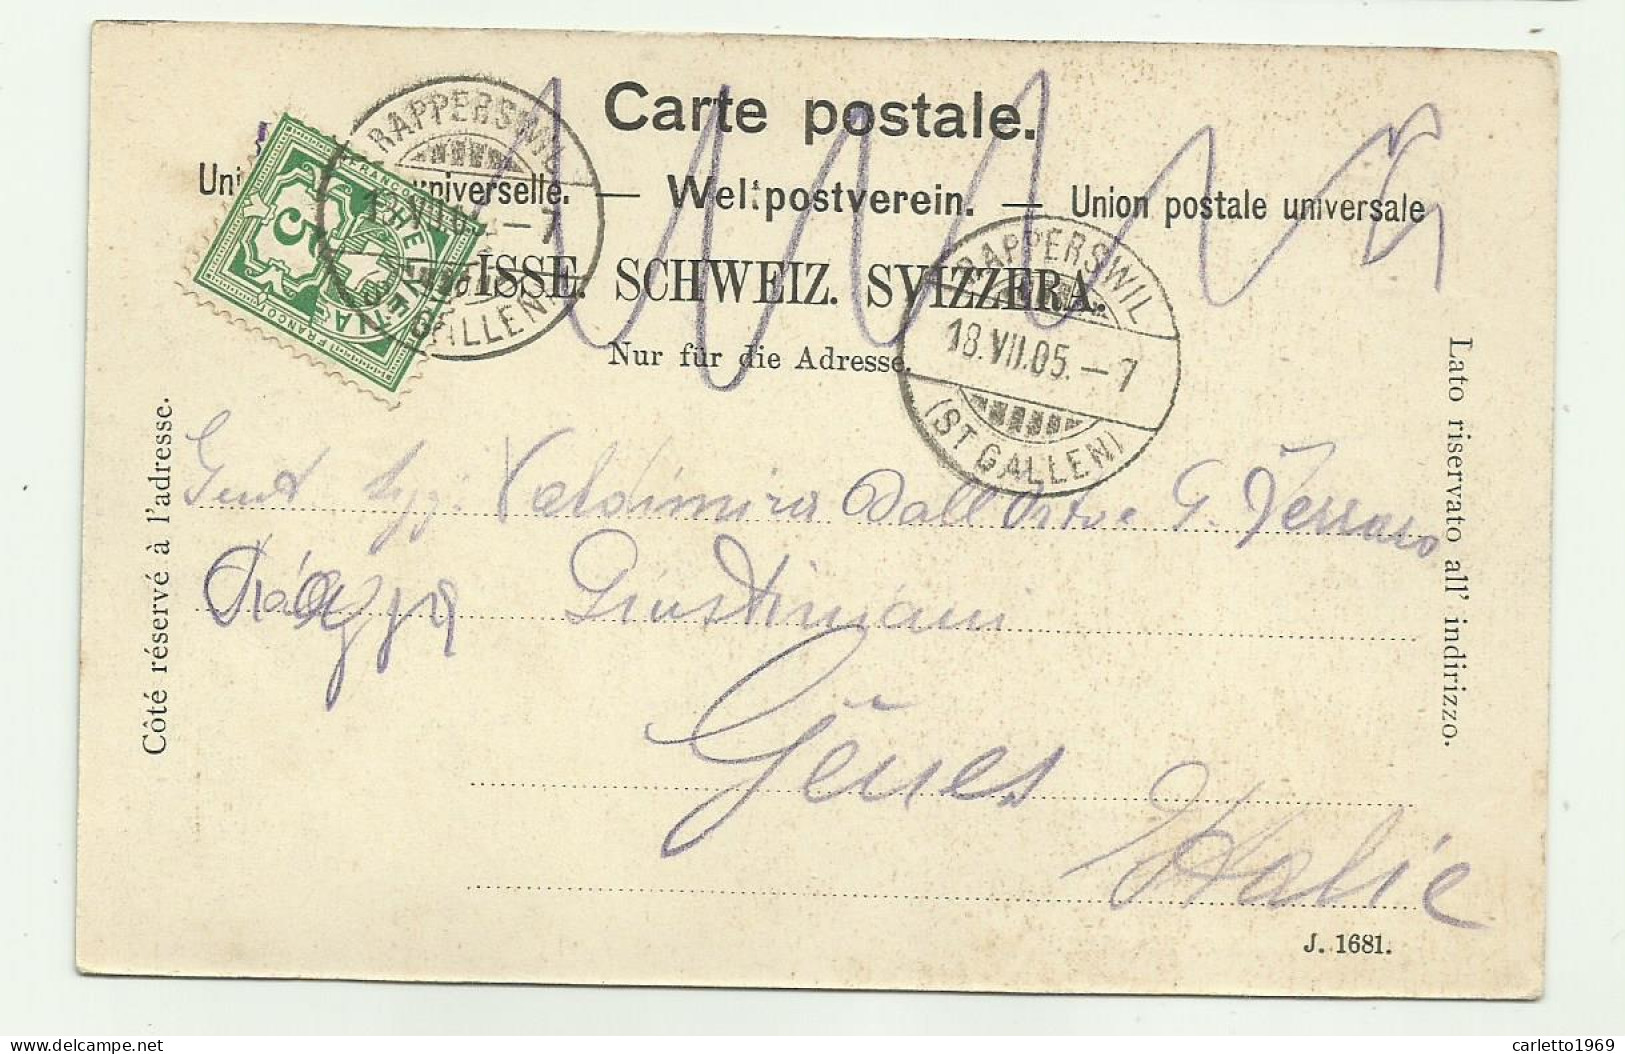 Carte postale.
Uni universelle. — Weltpostverein. — Union postale universale
ISSE. SCHWEIZ. SVIZZERA.
Nur für die Adresse.
RAPPERSWIL
VII.05.–7
(ST GALLEN)
RAPPERSWIL
18.VII.05.–7
(ST GALLEN)
FRANCO
5
HELVETIA
FRANCO
Côté réservé à l'adresse.
Lato riservato all' indirizzo.
Gent Valdimira Dall'Orto e G. Ferraro
Giustiniani
Gênes
Italie
J. 1681.
carletto1969